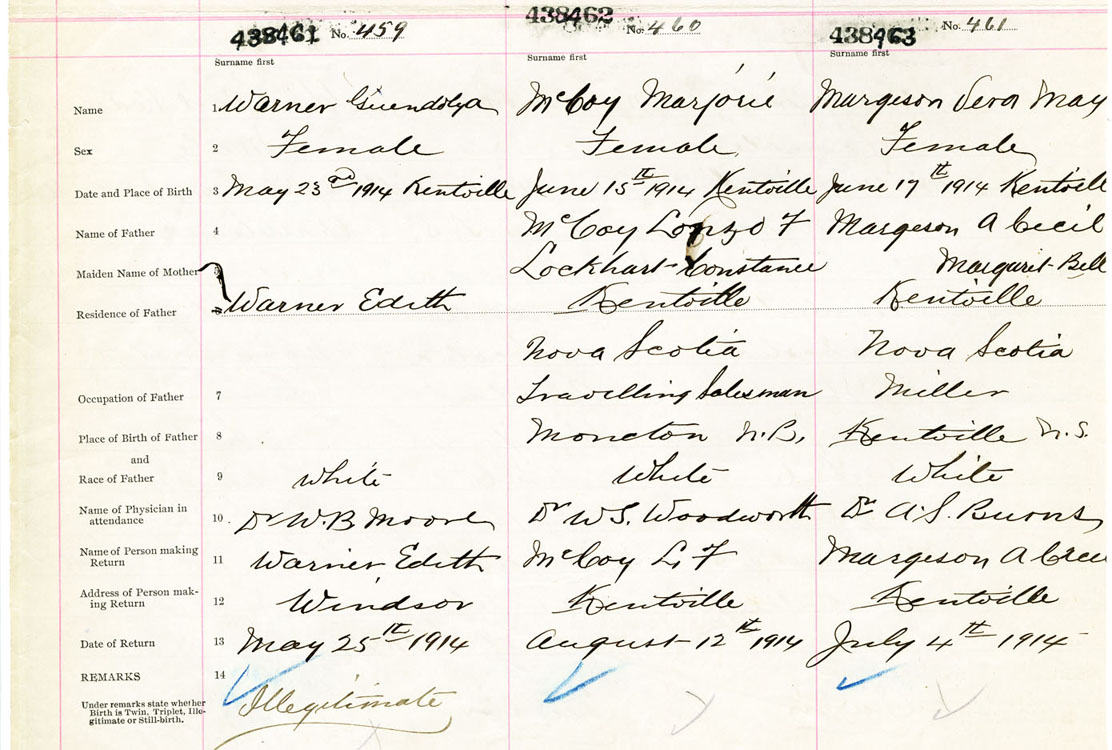 438461 No. 459 438462 No. 460 438463 No. 461
Surname first Surname first Surname first
Name 1 Warner Guendolya McCoy Marjorie Margeson Vera May
Sex 2 Female Female Female
Date and Place of Birth 3 May 23rd 1914 Kentville June 15th 1914 Kentville June 17th 1914 Kentvill
Name of Father 4 McCoy Lonzo F Margeson A Cecil
Maiden Name of Mother 5 Lockhart Constance Margaret Bell
Residence of Father Warner Edith Kentville Kentville
Nova Scotia Nova Scotia
Occupation of Father 7 Travelling Salesman Miller
Place of Birth of Father 8 Moncton N.B. Kentville N.S.
and
Race of Father 9 White White White
Name of Physician in attendance 10. Dr W.B. Moore Dr W.S. Woodworth Dr A.S. Burns
Name of Person making Return 11 Warner Edith McCoy L, F Margeson A Cecil
Address of Person mak-
ing Return 12 Windsor Kentville Kentville
Date of Return 13 May 25th 1914 August 12th 1914 July 4th 1914
REMARKS 14
Illegitimate
Under remarks state whether
Birth is Twin, Triplet, Ille-
gitimate or Still-birth.